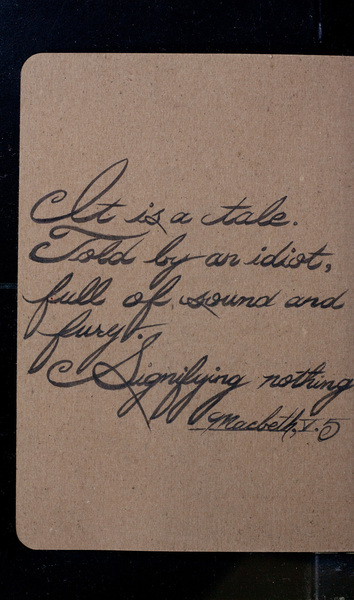 It is a tale.
Told by an idiot,
full of sound and
fury.
Signifying nothing
Macbeth, V. 5